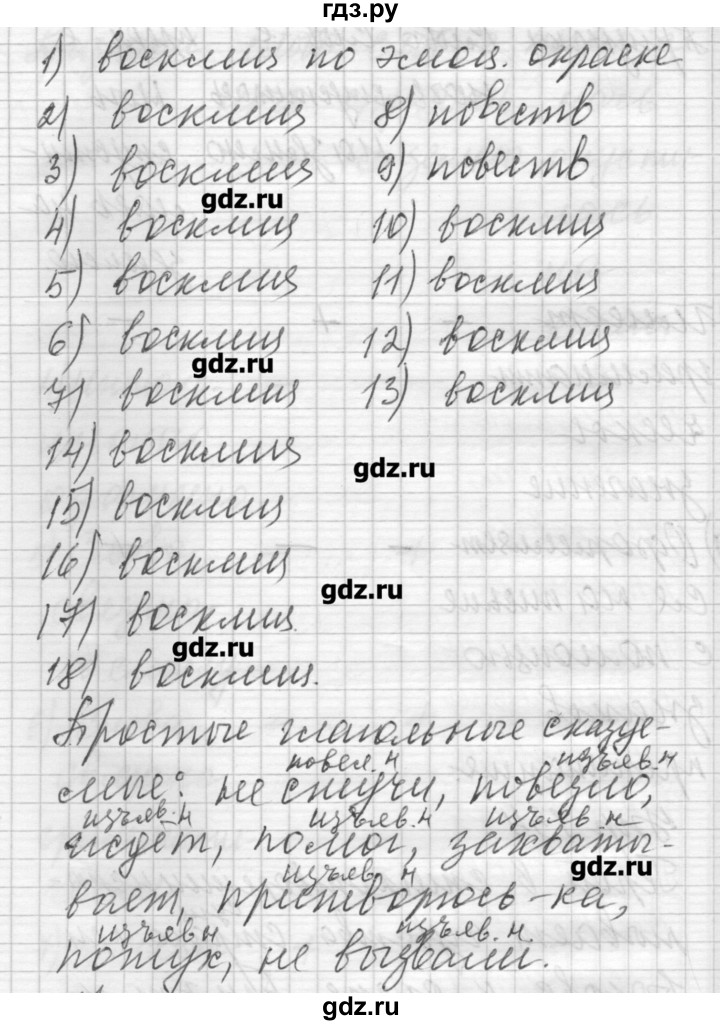 гдз.ру
1) восклиц по эмоц. окраске
2) восклиц 8) повеств
3) восклиц 9) повеств
gdz.ru
4) восклиц 10) восклиц
5) восклиц 11) восклиц
6) восклиц 12) восклиц
gdz.ru
7) восклиц 13) восклиц
14) восклиц
gdz.ru
15) восклиц
16) восклиц
gdz.ru
17) восклиц.
gdz.ru
18) восклиц.
Простые глагольные сказуе-
повел. н изъяв. н
мые: не скучи, повезло,
изъяв. н изъяв. н изъяв н
ждет, помог, захваты-
gdz.ru
изъяв. н
вает, притворюсь-ка,
изъяв н изъяв. н.
потух, не вызвали.
gdz.ru